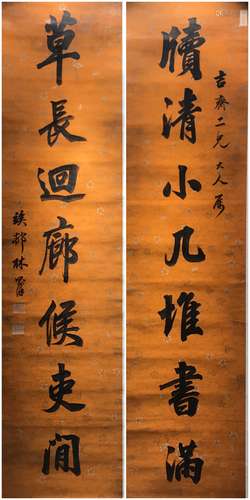 吉齋二兄大人屬
牘清小几堆書滿
草長迴廊候吏閒
琰邨林召棠